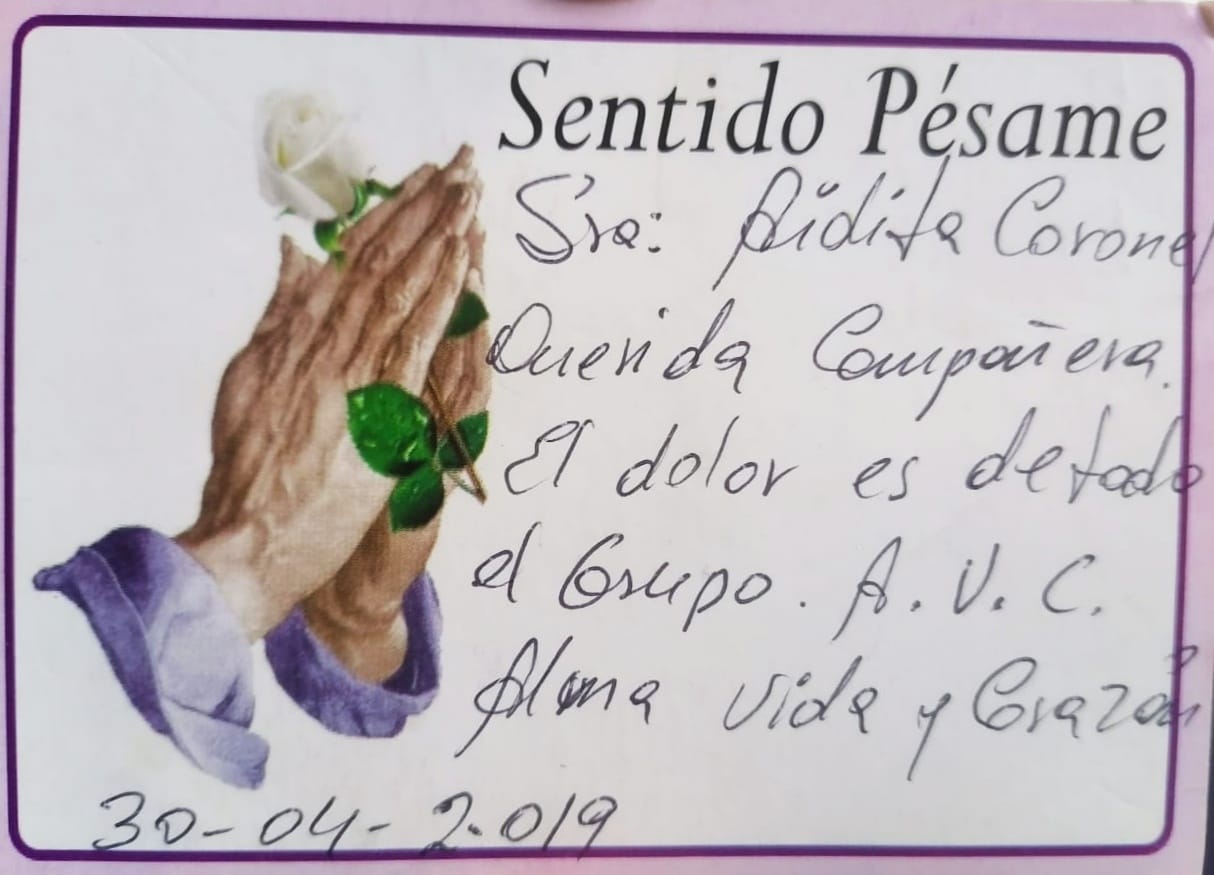 Sentido Pésame
Sra: Aidita Coronel
Querida Compañera.
El dolor es de todo
el Grupo. A. V. C.
Alma Vida y Corazón
30-04-2.019